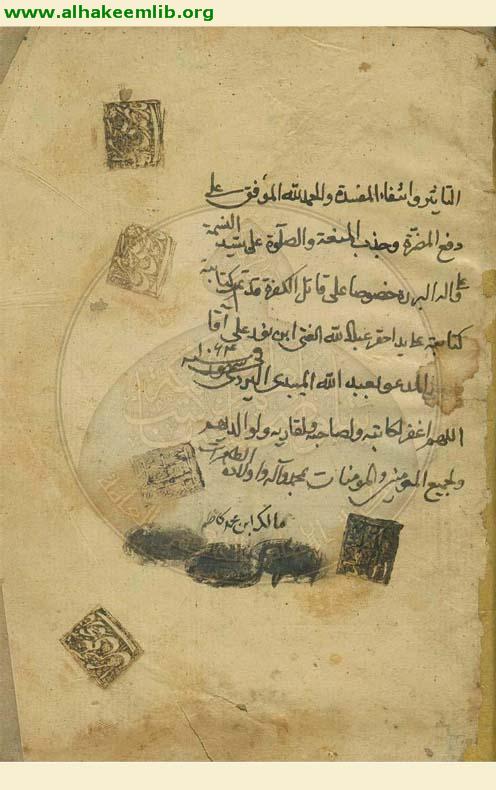 www.alhakeemlib.org
التاثير وانتفاء المفسدة والحمد لله الموفق على
دفع المضرة وجذب المنفعة والصلوة على سيد النسمة
وآله البررة خصوصا على قاتل الكفرة قد تمت كتابة
كتابته على يد احقر عباد الله الغني ابن نور علي آقا
المدعو بعبد الله الميبدي اليزدي في سنه ١٠٦٤
اللهم اغفر لكاتبه ولصاحبه ولقاريه ولوالديهم
ولجميع المؤمنين والمؤمنات بمحمد وآله واولاده الطاهرين
مالك ابن محمد كاظم